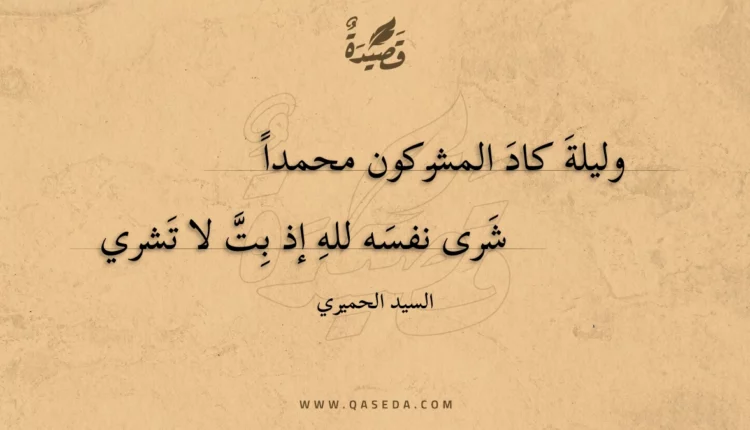 قَصِيْدَةٌ
وليلةَ كادَ المشركون محمداً
شَرى نفسَه للهِ إذ بِتَّ لا تَشري
السيد الحميري
WWW.QASEDA.COM